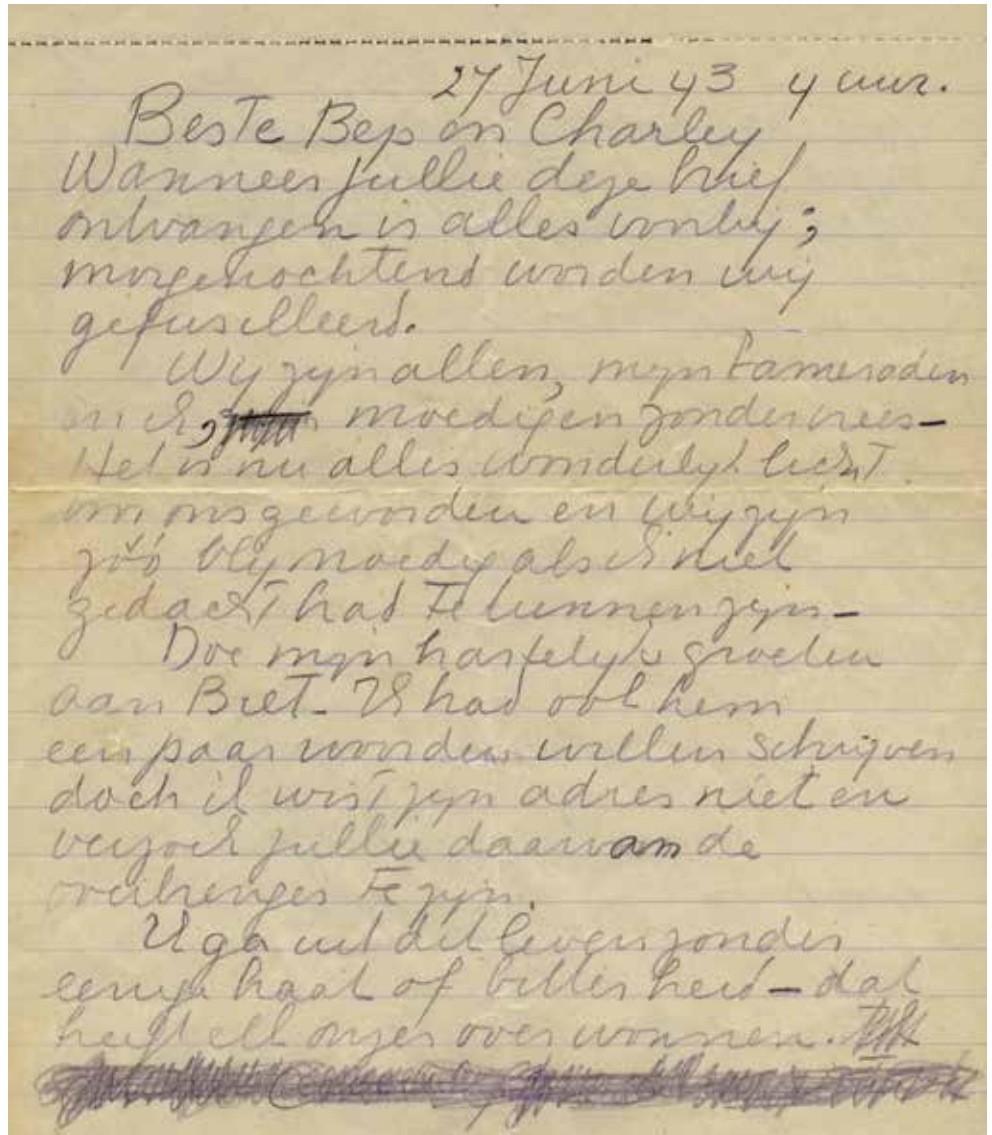 27 Juni 43 4 uur.
Beste Bep en Charley
Wanneer jullie deze brief
ontvangen is alles voorbij;
morgenochtend worden wij
gefusilleerd.
Wij zijn allen, mijn kameraden
en ik, moedig en zonder vrees—
Het is nu alles wonderlijk licht
om ons geworden en wij zijn
zóó blijmoedig als ik niet
gedacht had te kunnen zijn—
Doe mijn hartelijke groeten
aan Biet— Ik had ook hem
een paar woorden willen schrijven
doch ik wist zijn adres niet en
verzoek jullie daarvan de
overbrenger te zijn.
Ik ga uit dit leven zonder
eenige haat of bitterheid — dat
heeft elk onzer overwonnen.